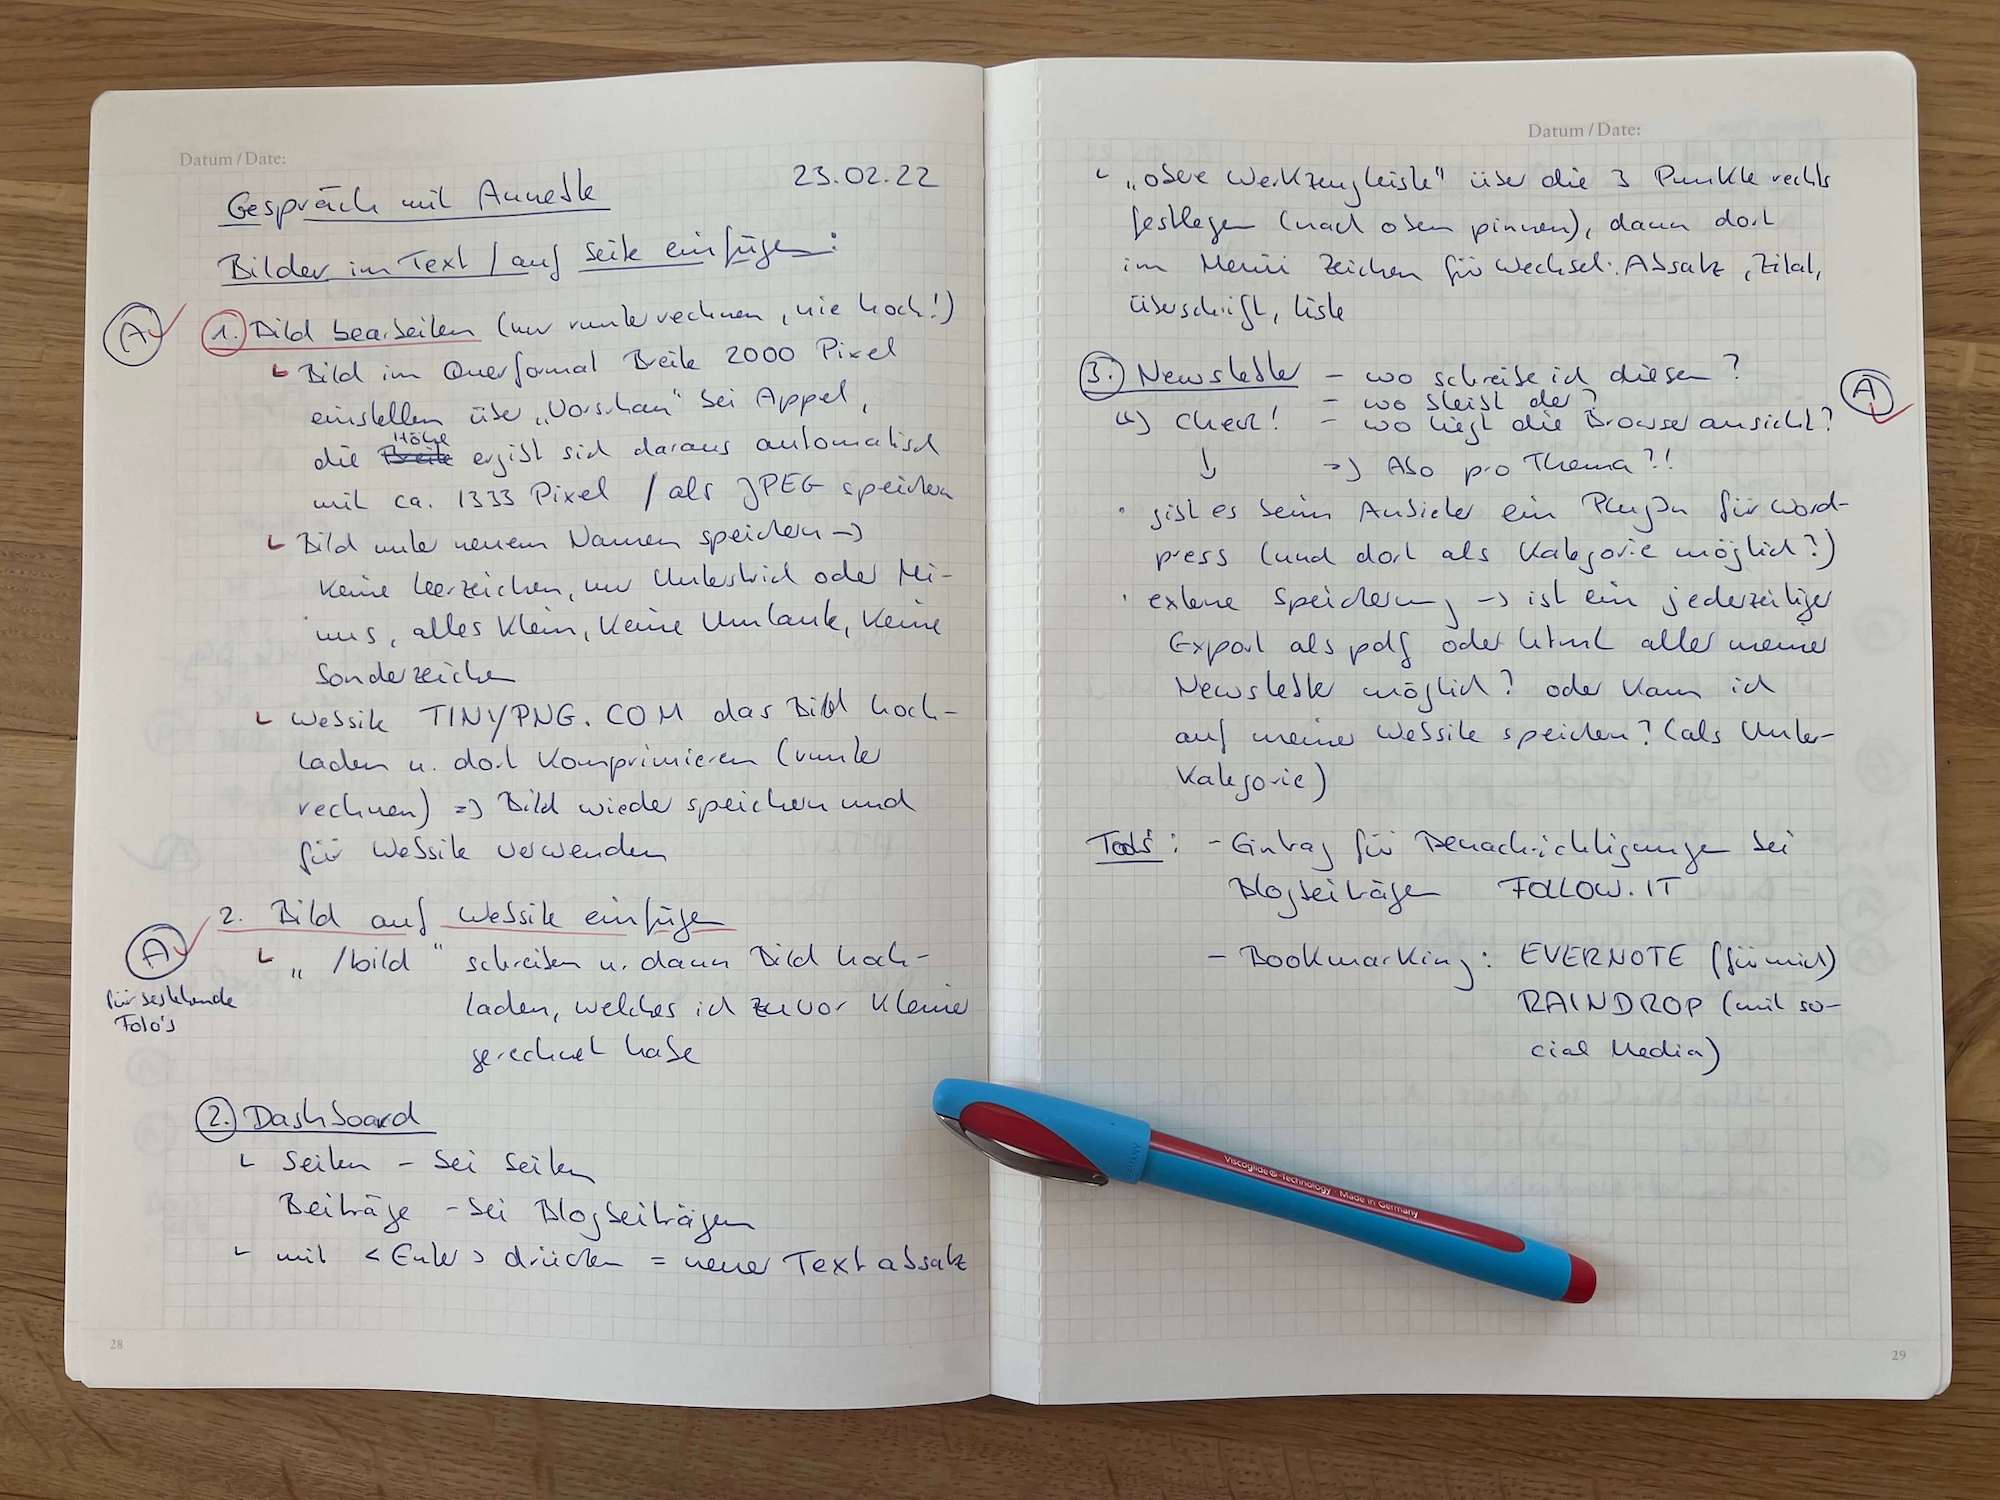 Datum/Date:
23.02.22
Gespräch mit Annette
Bilder im Text / auf Seite einfügen:
A
1. Bild bearbeiten (nur runterrechnen, nie hoch!)
Bild im Querformat Breite 2000 Pixel
einstellen über „Vorschau" bei Appel,
Höhe
die Breite ergibt sich daraus automatisch
mit ca. 1333 Pixel / als JPEG speichern
Bild unter neuem Namen speichern ->
keine Leerzeichen, nur Unterstrich oder Mi-
nus, alles klein, keine Umlaute, keine
Sonderzeichen
Website TINYPNG.COM das Bild hoch-
laden u. dort komprimieren (runter
rechnen) => Bild wieder speichern und
für Website verwenden
2. Bild auf Website einfügen
A
für bestehende
Foto's
„ /bild " schreiben u. dann Bild hoch-
laden, welches ich zuvor kleine
gerechnet habe
2. Dashboard
Seiten - bei Seiten
Beiträge - bei Blogbeiträgen
mit <Enter> drücken = neuer Textabsatz
28
Datum/Date:
„obere Werkzeugleiste" über die 3 Punkte rechts
festlegen (nach oben pinnen), dann dort
im Menü Zeichen für Wechsel: Absatz, Zitat,
Überschrift, Liste
3. Newsletter - wo schreibe ich diesen?
- wo bleibt der?
Check! - wo liegt die Browseransicht?
A
=> Abo pro Thema?!
· gibt es beim Anbieter ein PlugIn für Word-
press (und dort als Kategorie möglich?)
· externe Speicherung -> ist ein jederzeitiger
Export als pdf oder html aller meiner
Newsletter möglich? oder kann ich
auf meiner Website speichern? (als Unter-
kategorie)
Tools: - Eintrag für Benachrichtigungen bei
Blogbeiträgen FOLLOW.IT
- Bookmarking: EVERNOTE (für mich)
RAINDROP (mit so-
cial Media)
Viscoglide®-Technology · Made in Germany
29